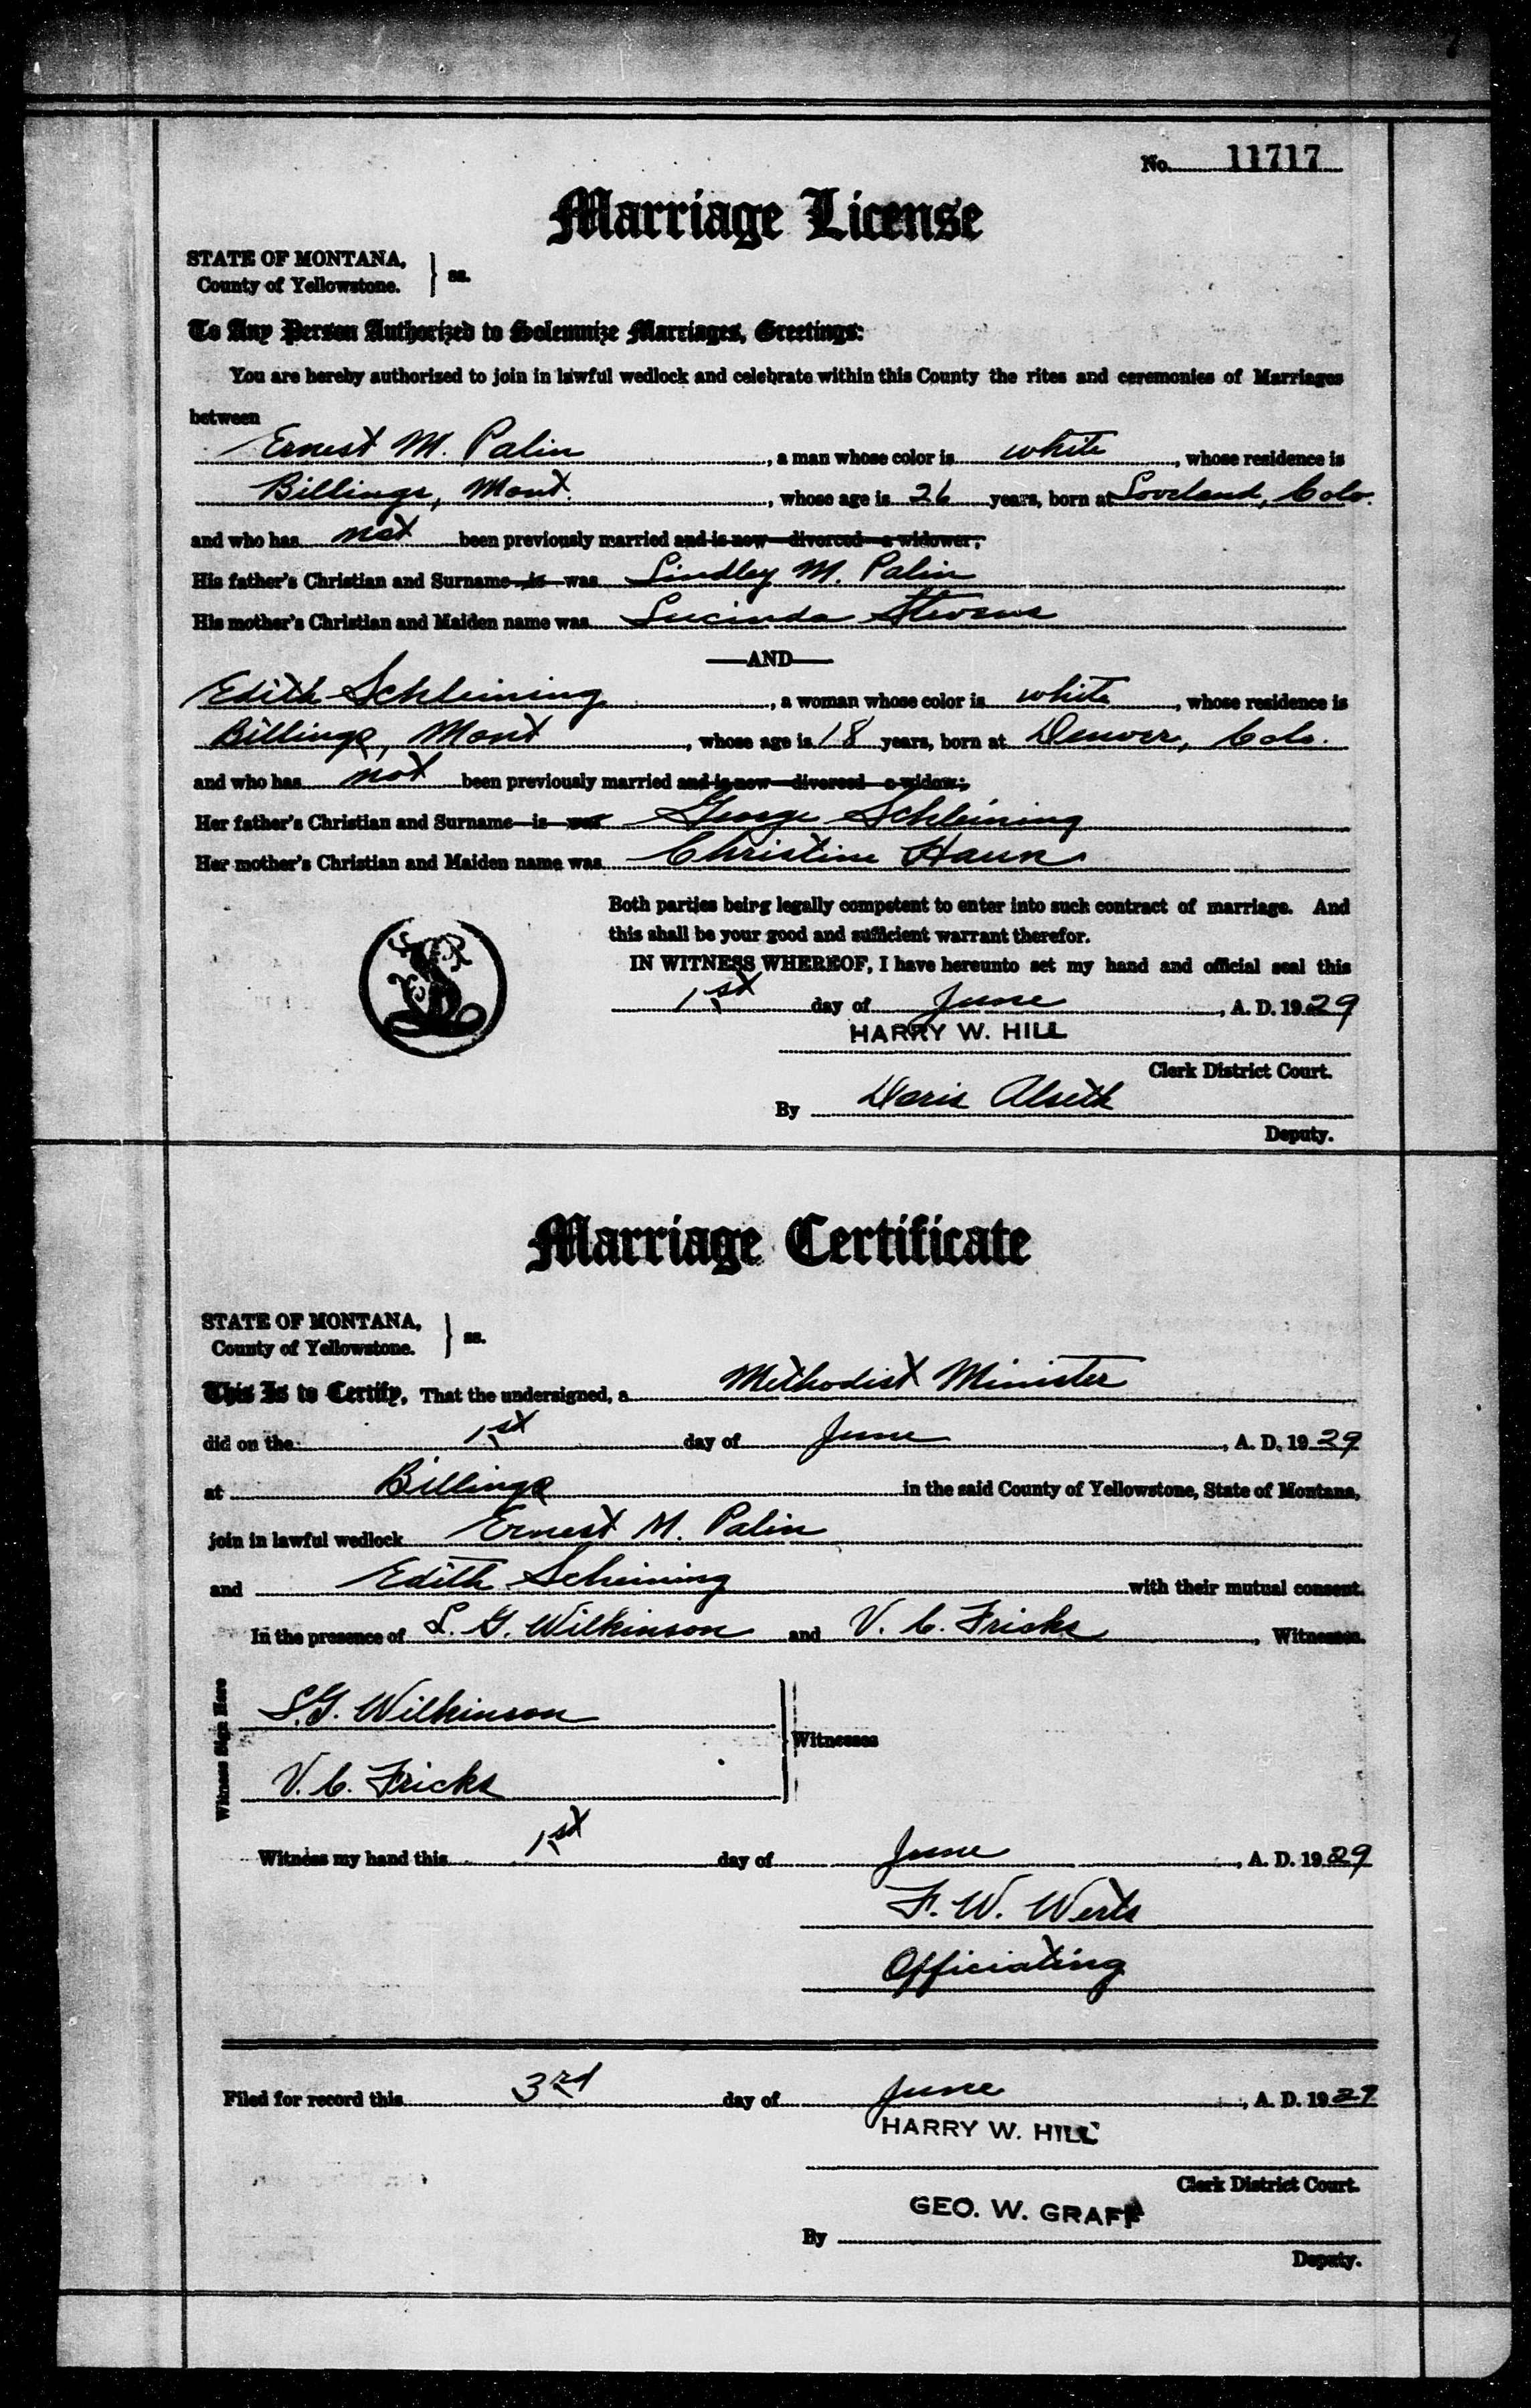 No. 11717
Marriage License
STATE OF MONTANA,
County of Yellowstone. } ss.
To Any Person Authorized to Solemnize Marriages, Greetings:
You are hereby authorized to join in lawful wedlock and celebrate within this County the rites and ceremonies of Marriages
between
Ernest M. Palin, a man whose color is white, whose residence is
Billings, Mont., whose age is 26 years, born at Loveland, Colo.
and who has not been previously married and is now divorced a widower;
His father's Christian and Surname is was Lindley M. Palin
His mother's Christian and Maiden name was Lucinda Stevens
—AND—
Edith Schleining, a woman whose color is white, whose residence is
Billings, Mont, whose age is 18 years, born at Denver, Colo.
and who has not been previously married and is now divorced a widow;
Her father's Christian and Surname is was George Schleining
Her mother's Christian and Maiden name was Christine Haun
Both parties being legally competent to enter into such contract of marriage. And
this shall be your good and sufficient warrant therefor.
IN WITNESS WHEREOF, I have hereunto set my hand and official seal this
1st day of June, A. D. 1929
HARRY W. HILL
Clerk District Court.
By Doris Alseth
Deputy.
Marriage Certificate
STATE OF MONTANA,
County of Yellowstone. } ss.
This Is to Certify, That the undersigned, a Methodist Minister
did on the 1st day of June, A. D. 1929
at Billings in the said County of Yellowstone, State of Montana,
join in lawful wedlock Ernest M. Palin
and Edith Scheining with their mutual consent.
In the presence of L. G. Wilkinson and V. C. Fricks, Witnesses.
Witness Sign Here
L.G. Wilkinson
Witnesses
V. C. Fricks
Witness my hand this 1st day of June, A. D. 1929
F. W. Werts
Officiating
Filed for record this 3rd day of June, A. D. 1929
HARRY W. HILL
Clerk District Court.
GEO. W. GRAFF
By
Deputy.